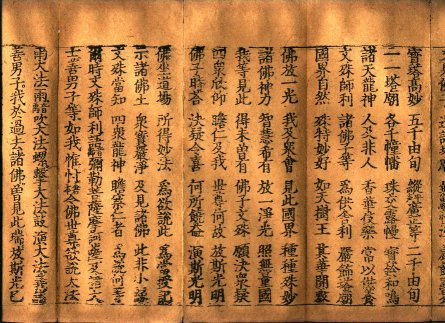 寶塔高妙 五千由旬 縱廣正等 二千由旬
一一塔廟 各千幢幡 珠交露幔 寶鈴和鳴
諸天龍神 人及非人 香華伎樂 常以供養
文殊師利 諸佛子等 為供舍利 嚴飾塔廟
國界自然 殊特妙好 如天樹王 其華開敷
佛放一光 我及眾會 見此國界 種種殊妙
諸佛神力 智慧希有 放一淨光 照無量國
我等見此 得未曾有 佛子文殊 願決眾疑
四眾欣仰 瞻仁及我 世尊何故 放斯光明
佛子時答 決疑令喜 何所饒益 演斯光明
佛坐道場 所得妙法 為欲說此 為當授記
示諸佛土 眾寶嚴淨 及見諸佛 此非小緣
文殊當知 四眾龍神 瞻察仁者 為說何等
爾時文殊師利語彌勒菩薩摩訶薩及諸大
士善男子等如我惟忖今佛世尊欲說大法
雨大法雨吹大法螺擊大法鼓演大法義諸
善男子我於過去諸佛曾見此瑞放斯光已